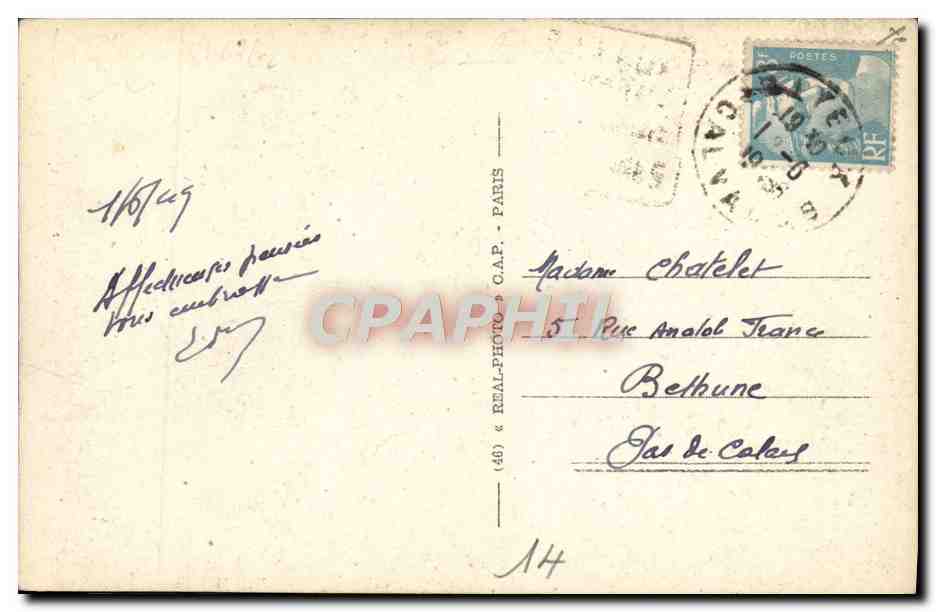 1/6/49
Affectueuses pensées
vous embrasse
(46) « REAL-PHOTO » C.A.P. - PARIS
POSTES
RF
RF
CALVA
19 30
1 - 6
Madame Chatelet
5 Rue Anatol France
Bethune
Pas de Calais
14
CPAPHIL